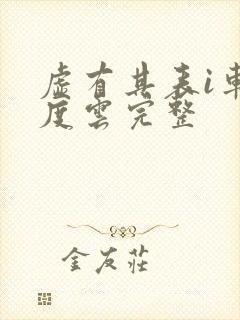 虛有其表i車
度雲完整
金友莊